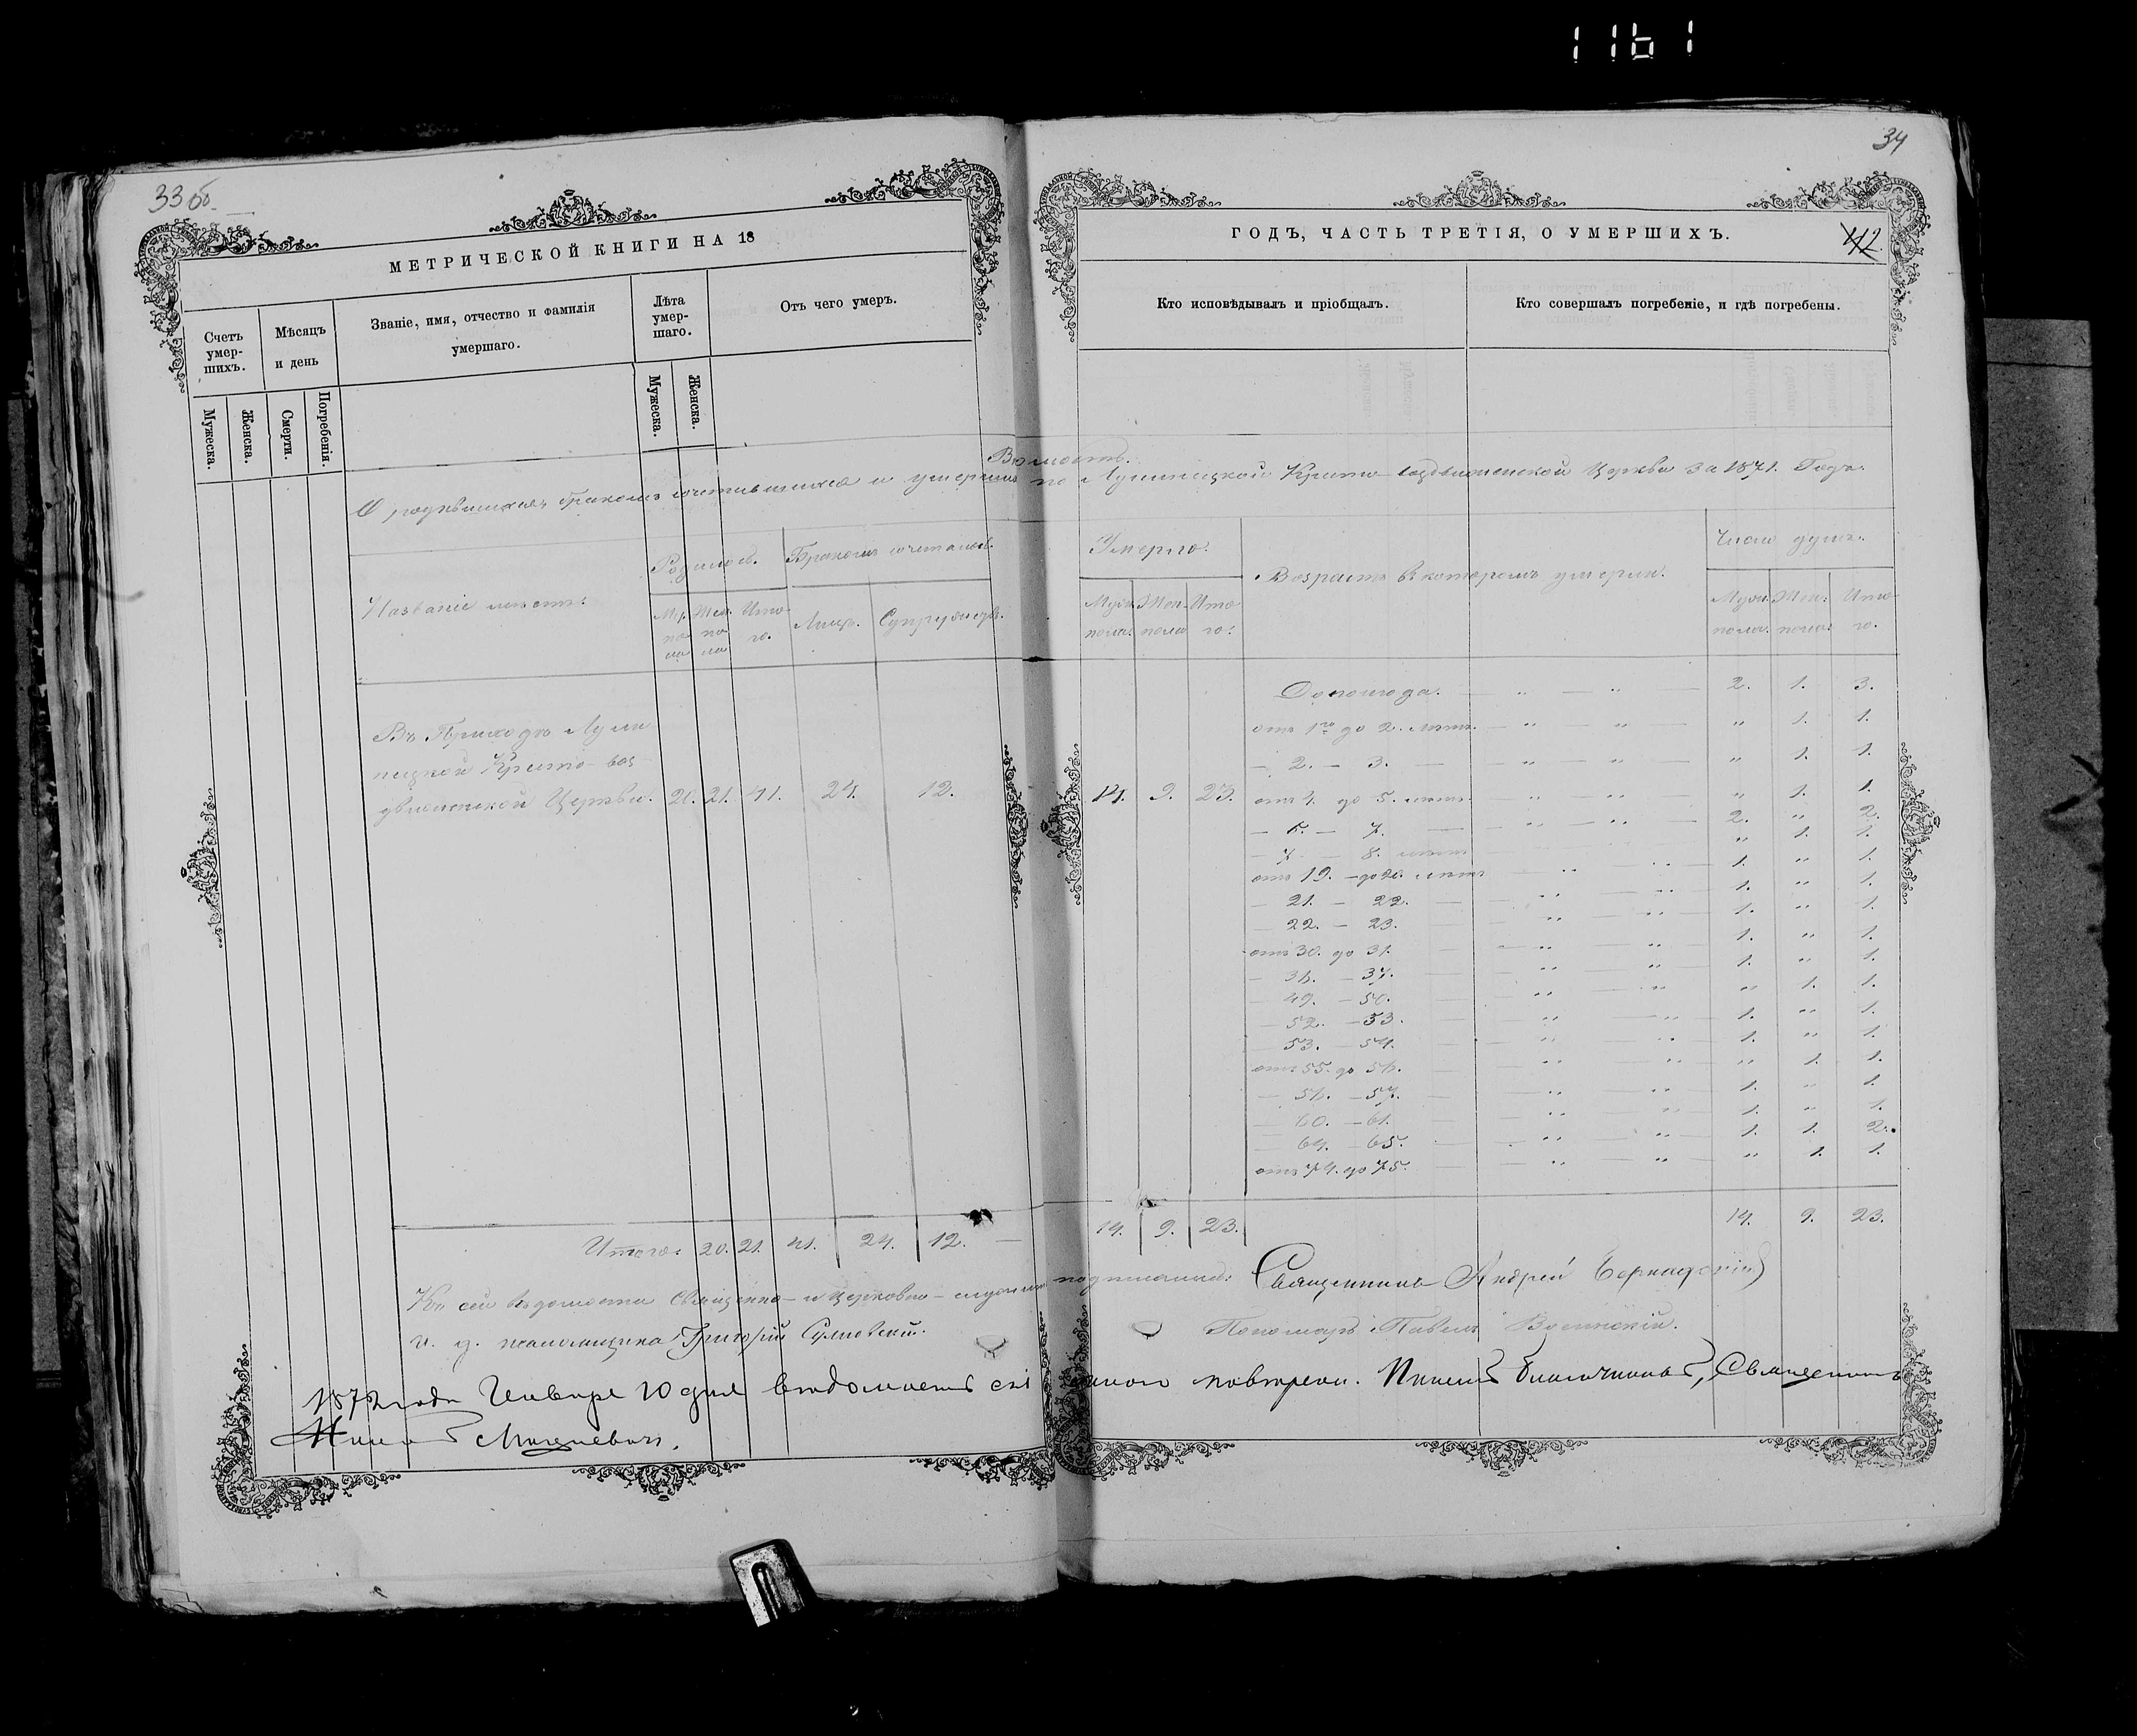 1161
33 об.
МЕТРИЧЕСКОЙ КНИГИ НА 18
Счетъ умер-шихъ.
Мѣсяцъ и день
Званіе, имя, отчество и фамилія
умершаго.
Лѣта умер-шаго.
Отъ чего умеръ.
Мужеска.
Женска.
Смерти.
Погребенія.
Мужеска.
Женска.
34
ГОДЪ, ЧАСТЬ ТРЕТІЯ, О УМЕРШИХЪ.
112.
Кто исповѣдывалъ и пріобщалъ.
Кто совершалъ погребеніе, и гдѣ погребены.
О родившихся, бракомъ сочетавшихся и умершихъ по Кресто-воздвиженской Церкви за 1871. Годъ.
Названіе мѣстъ:
Родилось.
Бракомъ сочеталось.
Муж. по ла
Жен. по ла
Ито го.
Лицъ.
Супружествъ.
Умерло.
Муж. пола.
Жен. пола
Ито го:
Возрастъ въ которомъ умерли.
Число душъ.
Муж. пола.
Жен. пола:
Ито го.
Въ Приходѣ
Кресто-воз
движенской Церкви. 21. 41. 24. 12.
14. 9. 23.
До полгода. — „ — „ — 2. 1. 3.
отъ 1го до 2. лѣтъ. — „ — „ — „ 1. 1.
— 2. — 3. — — „ — „ — „ 1. 1.
отъ 4. до 5. лѣтъ. „ — „ — „ 1. 1.
— 6. — 7. — — „ — „ — 2. „ 2.
— 7 — 8. лѣтъ „ 1. 1.
отъ 19. — до 20. лѣтъ — „ „ 1. „ 1.
— 21. — 22. — — „ — „ — 1. „ 1.
— 22. — 23. — — „ — „ — 1. „ 1.
отъ 30. до 31. — — „ — „ — 1. „ 1.
— 36. — 37. — — „ — „ — 1. „ 1.
— 49. — 50. — — „ — „ — „ 1. 1.
— 52. — 53. — — „ — „ — 1. „ 1.
53. — 54. — — „ — „ 1. „ 1.
отъ 55. до 56. — — „ — „ „ 1. 1.
— 56. — 57. — — „ — „ — 1. „ 1.
— 60. — 61. — — „ — „ — 1. „ 1.
— 64. — 65. — — „ — „ — 1. 1. 2.
отъ 74. до 75. — — „ — „ — „ 1. 1.
Итого: 20. 21. 41. 24. 12. —
14. 9. 23.
14. 9. 23.
Къ сей вѣдомости Священно- и церковно-служители подписались: Священникъ Андрей
и. д. псаломщика Григорій
Пономарь Павелъ
1872 года Января 10 дня вѣдомость сія мною повѣрена. Благочинный, Священникъ